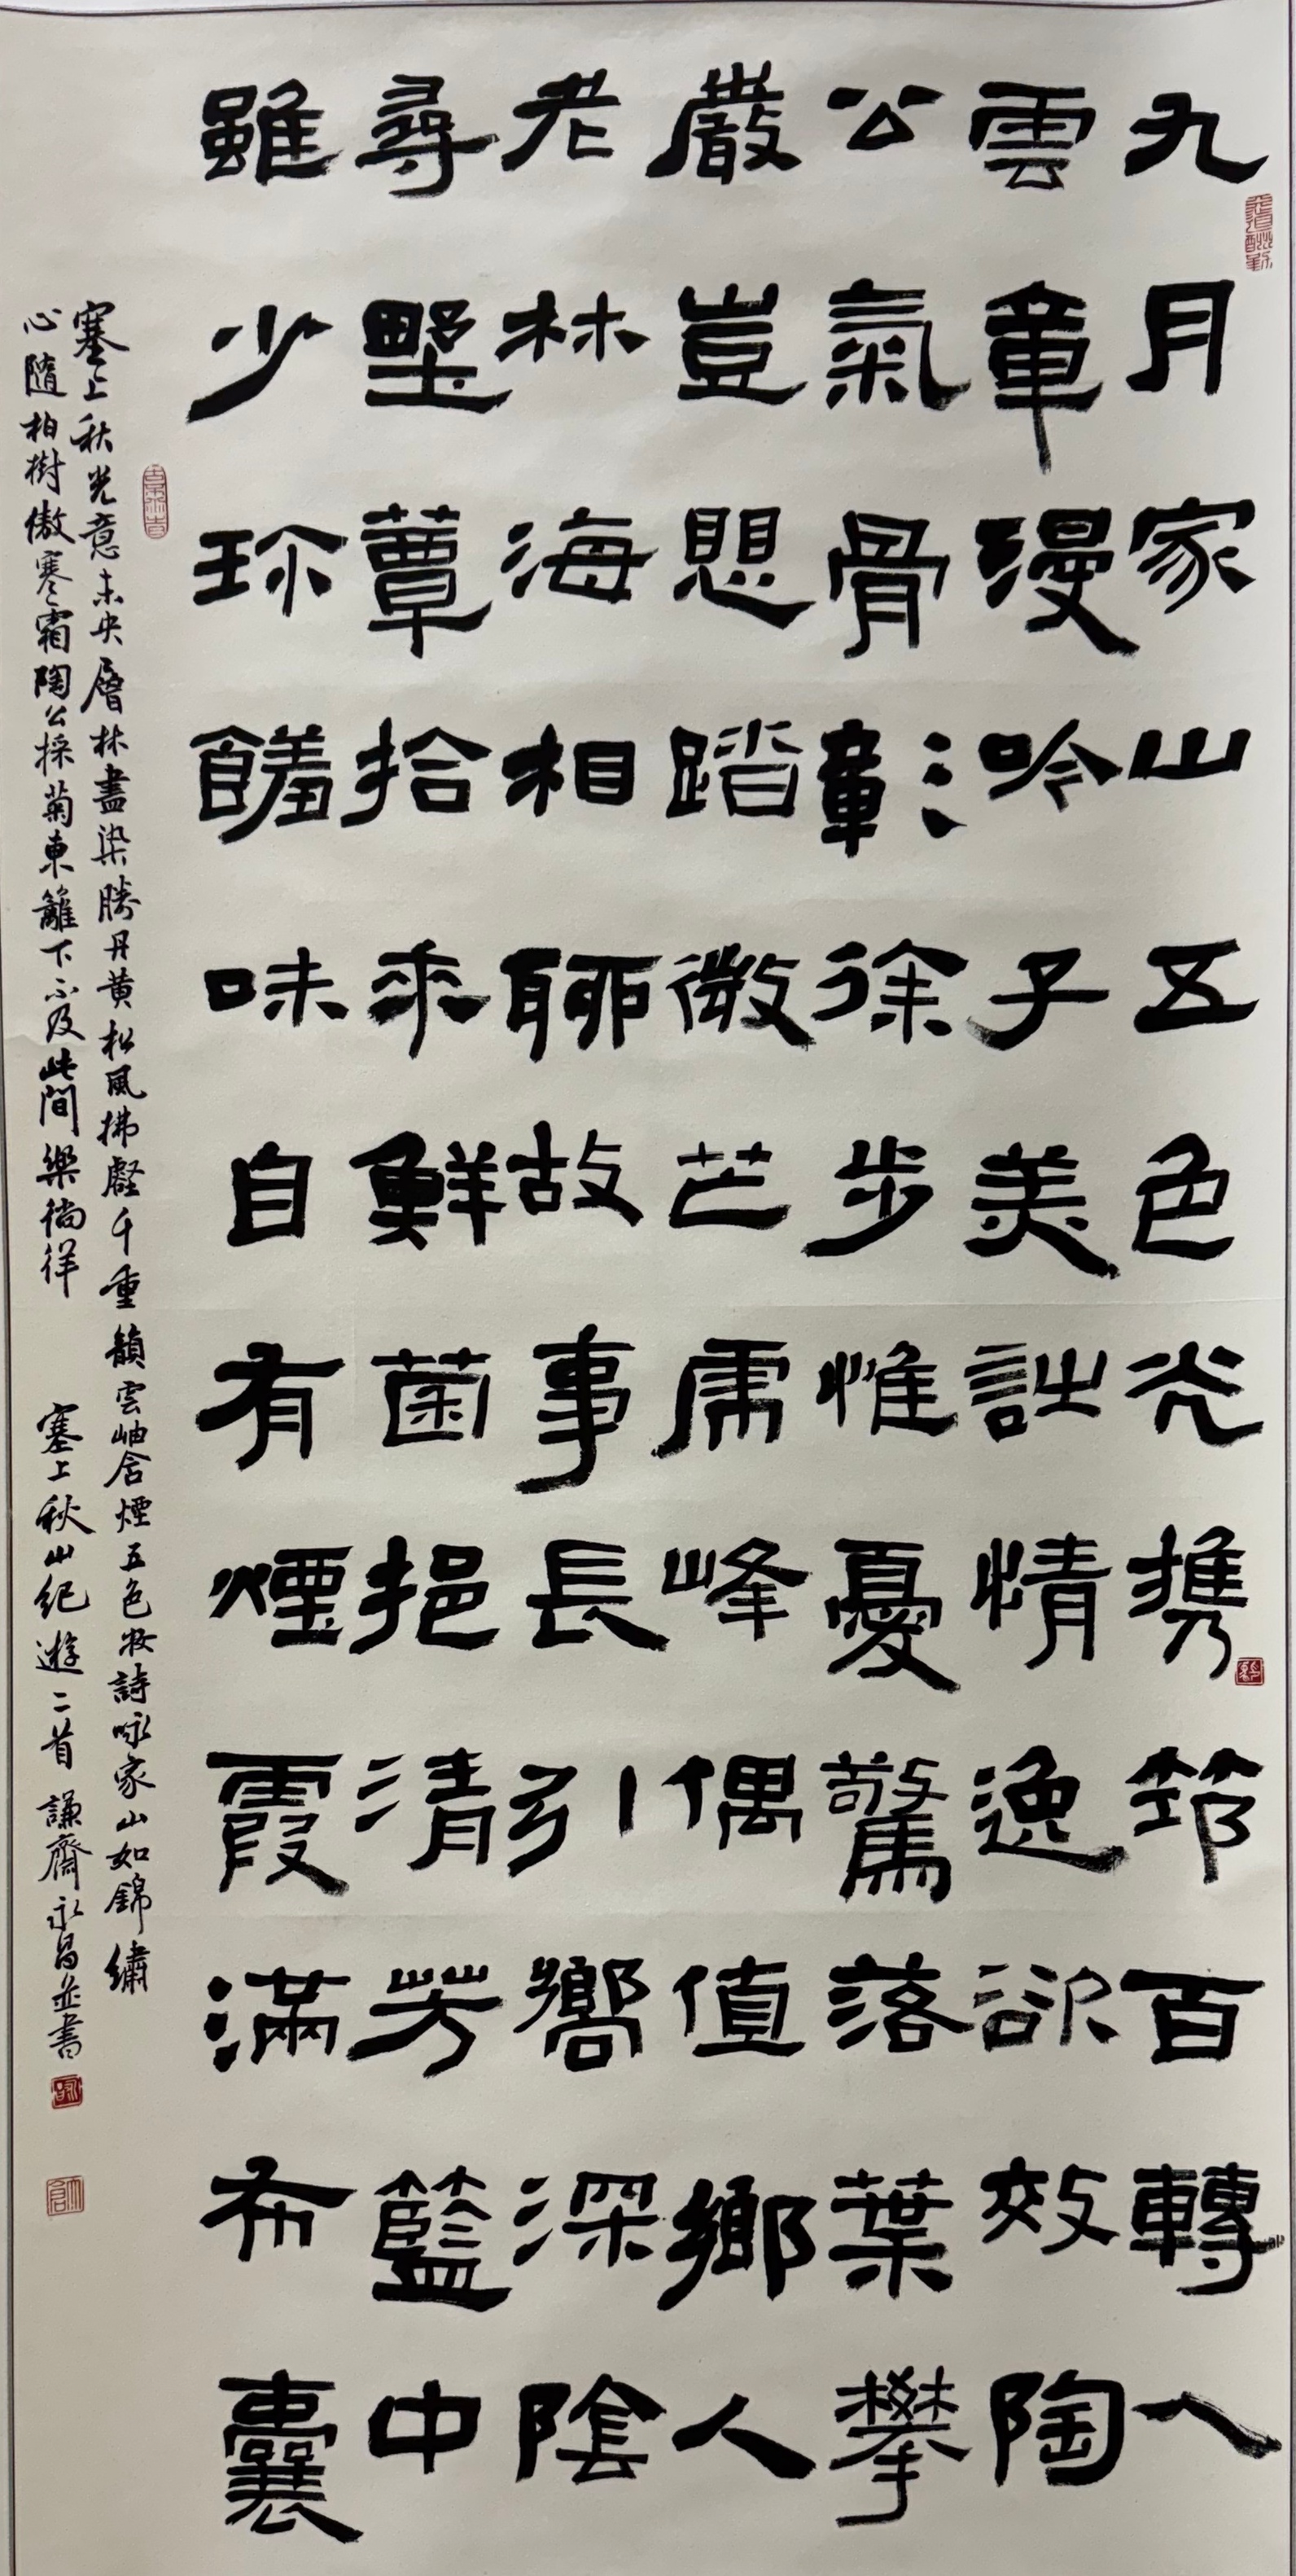 九月家山五色光携筇百轉入
雲章漫吟子美詩情逸欲效陶
公氣骨彰徐步惟憂驚落葉攀
嚴豈愳踏微芒峰偶值鄉人
老林海相聊故事長引嚮深陰
尋墅蕈拾來鮮菌挹清芳籃中
雖少珍饈味自有煙霞滿布囊
塞上秋光意未央層林盡染勝丹黃松風拂壑千重韻雲岫含煙五色妝詩咏家山如錦繡
心隨柏樹傲寒霜陶公採菊東籬下不及此間樂徜徉 塞上秋山紀遊二首 謙齋永昌並書
天道酬勤